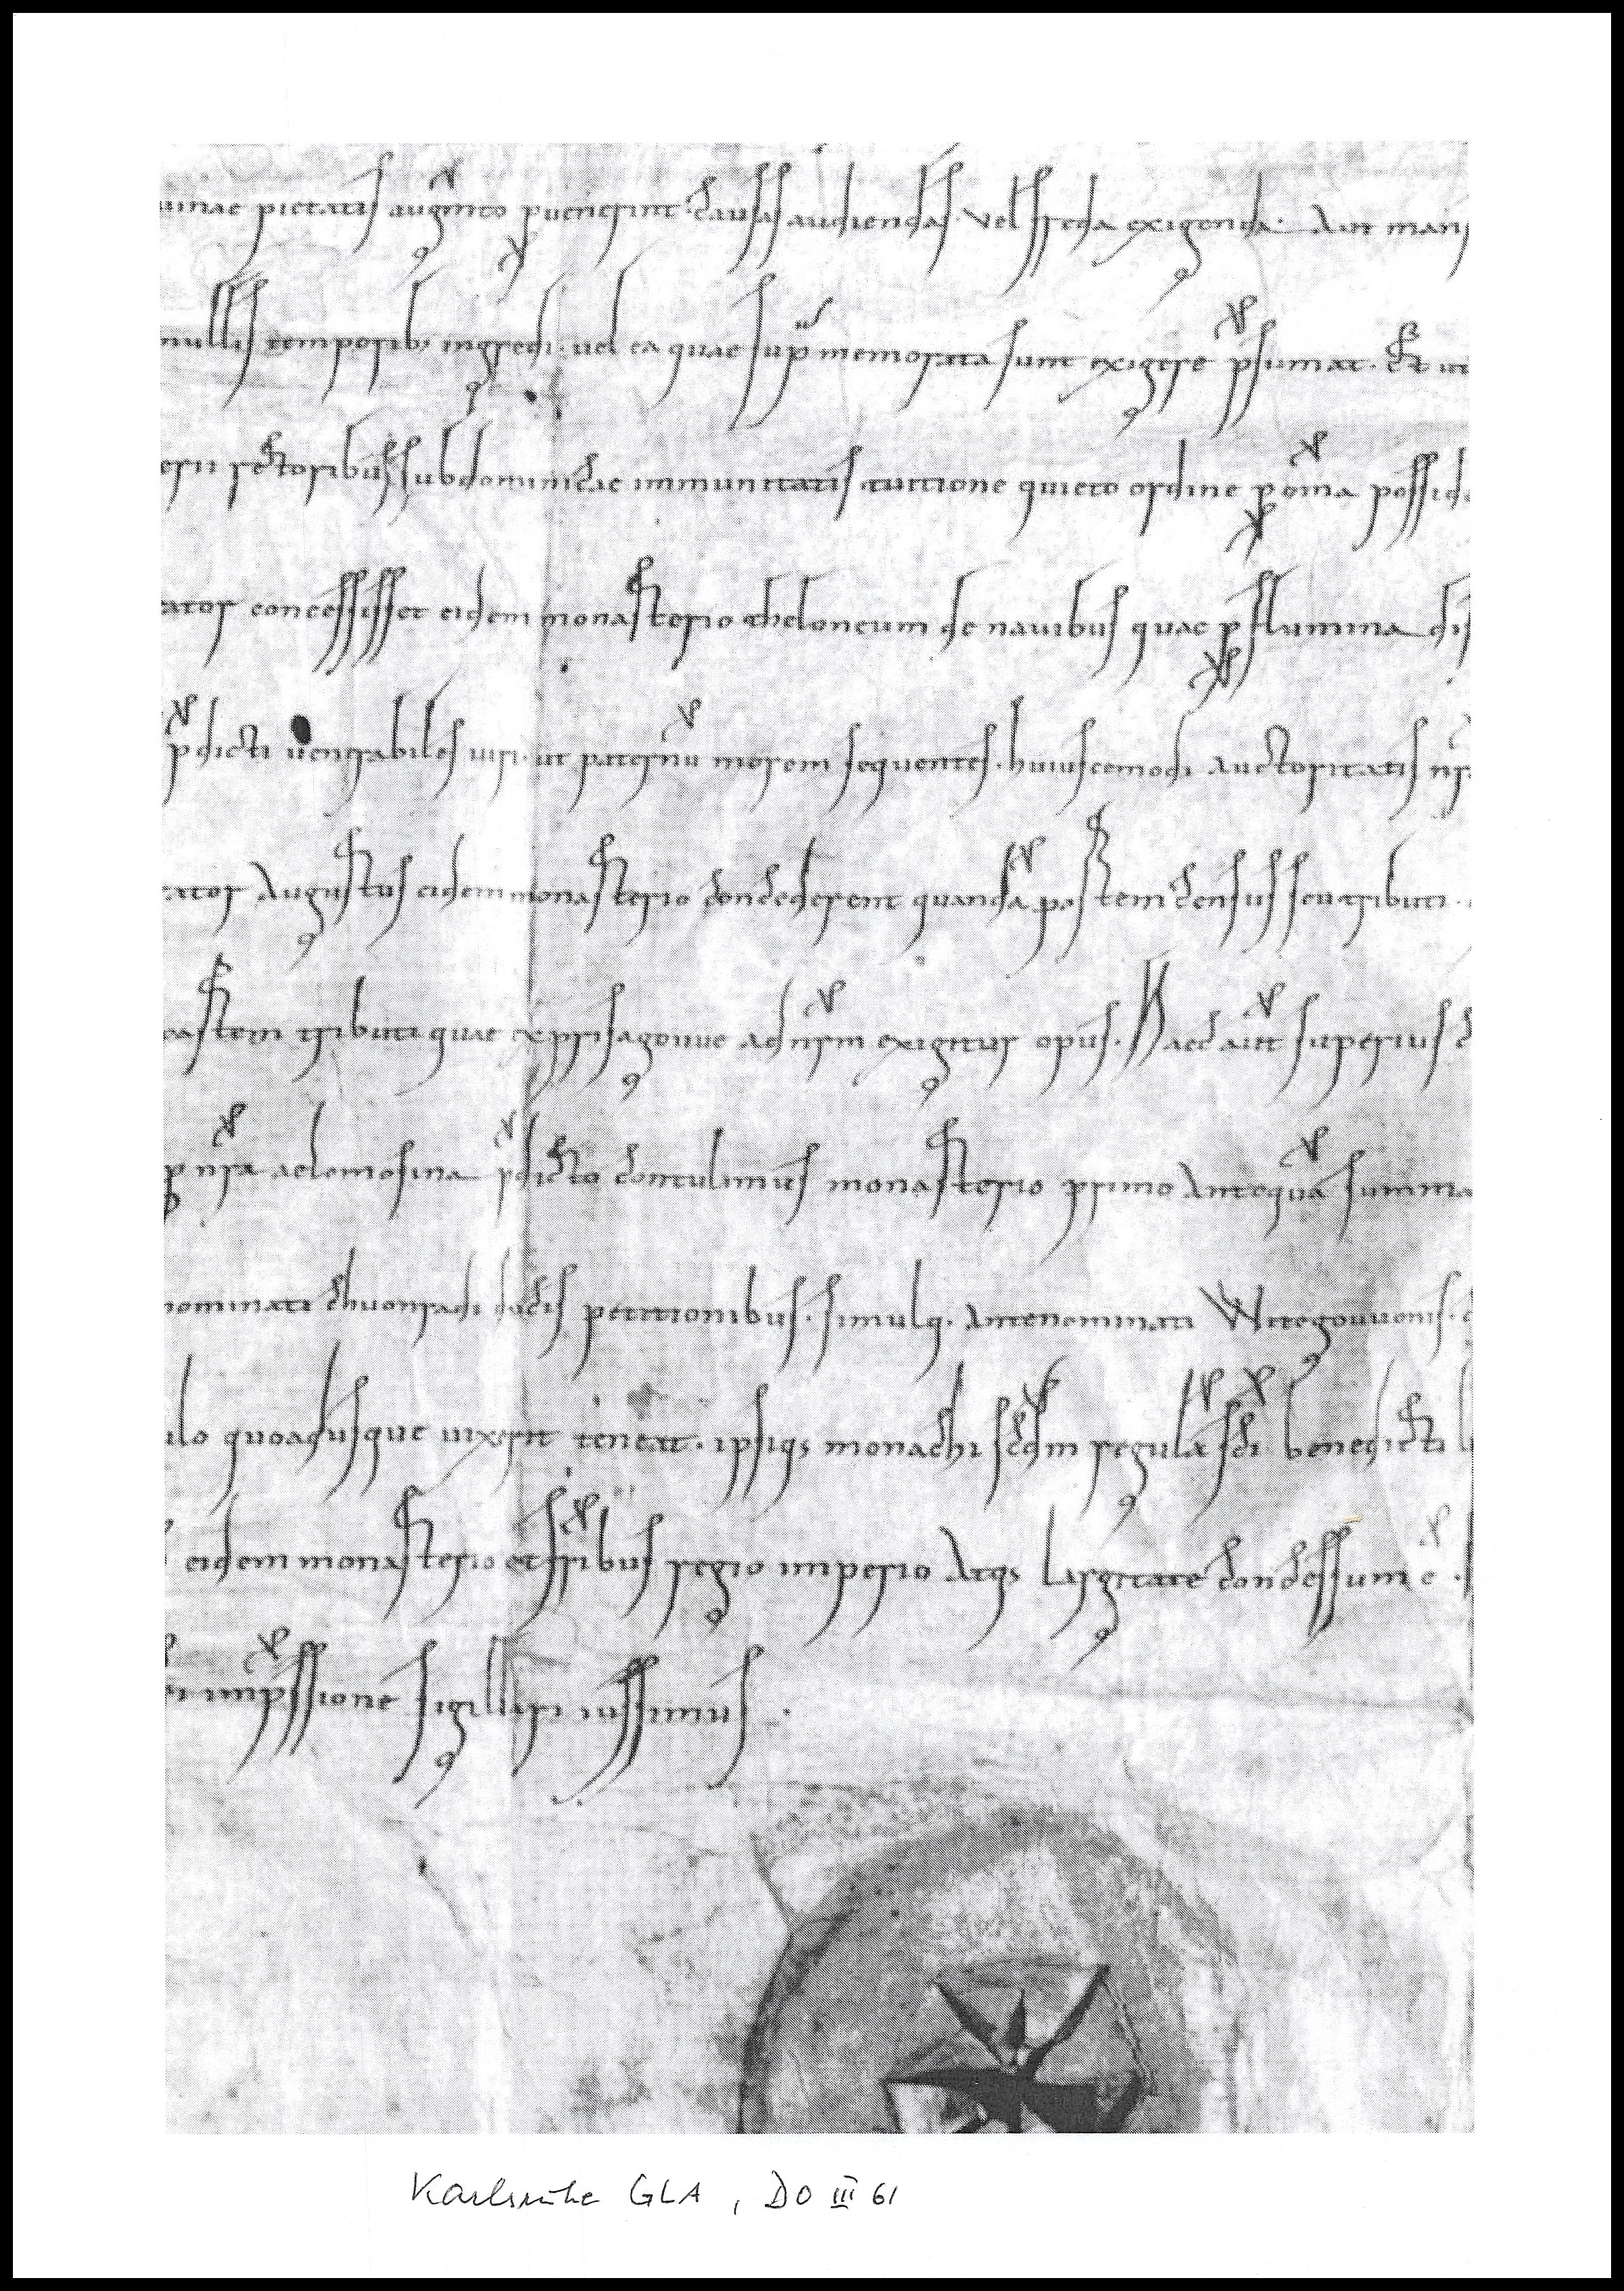 uinae pietatis augm̄to ꝓuenerint. causas audiendas. vel freda exigenda. Aut man
nullis temporib; ingredi. uel ea quae sup̄ memorata sunt exigere p̄sumat. Et ut
erii rectoribus sub dominicae immunitatis tuitione quieto ordine ꝑ om̄ia possid
ator concessisset eidem monasterio theloneum de nauibus quae ꝑ flumina dis
p̄dicti uenerabiles uiri. ut paternū morem sequentes. huiuscemodi auctoritatis nr̄
ator Augustus eidem monasterio concederent quandā partem census seu tributi.
partem tributi quae ex prisagouue ad nr̄m exigitur opus. Haec aut̄ superius c
ꝓ nr̄a aelemosina p̄dicto contulimus monasterio primo Antequā summa
nominati chuonradi ducis petitionibus. simulq. Antenominati Witegouuonis.
ulo quoadusque uixerit teneat. ipsiqꝫ monachi scd̄m regulā sc̄i benedicti
eidem monasterio et fr̄ibus regio imperio Atqꝫ Largitate concessum ē.
ri imp̄ssione sigillari iussimus.
Karlsruhe GLA, DO III 61